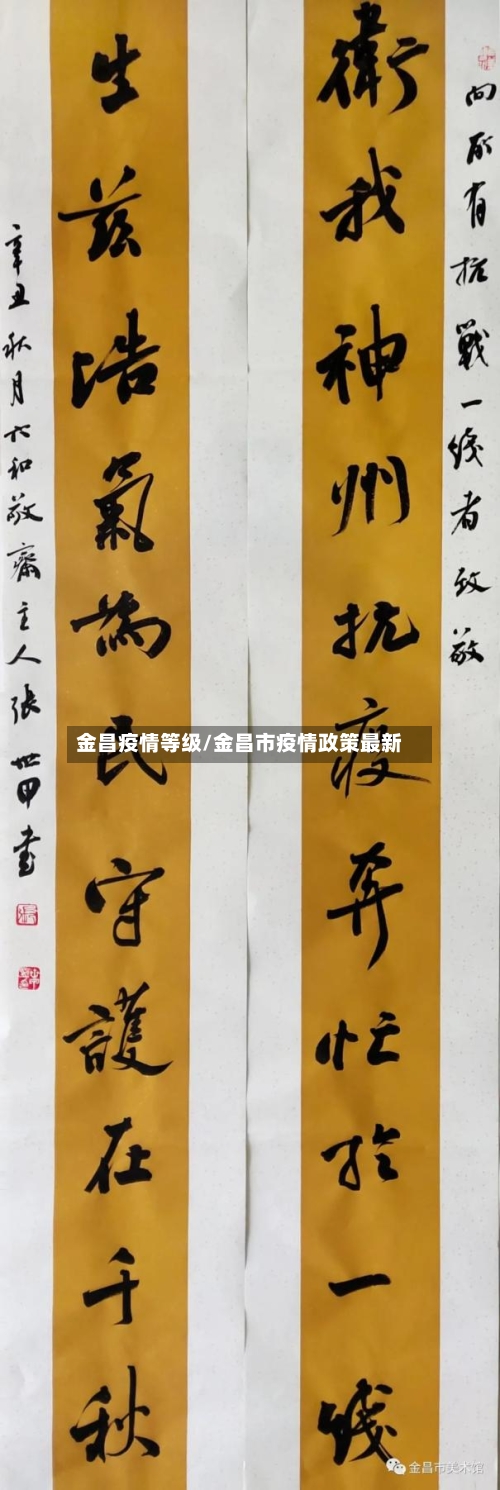 向所有抗戰一线者致敬
衛我神州抗疫奔忙於一线
生兹浩氣為民守護在千秋
辛丑秋月六和敬齋主人張世甲書
金昌疫情等级/金昌市疫情政策最新
金昌市美术馆